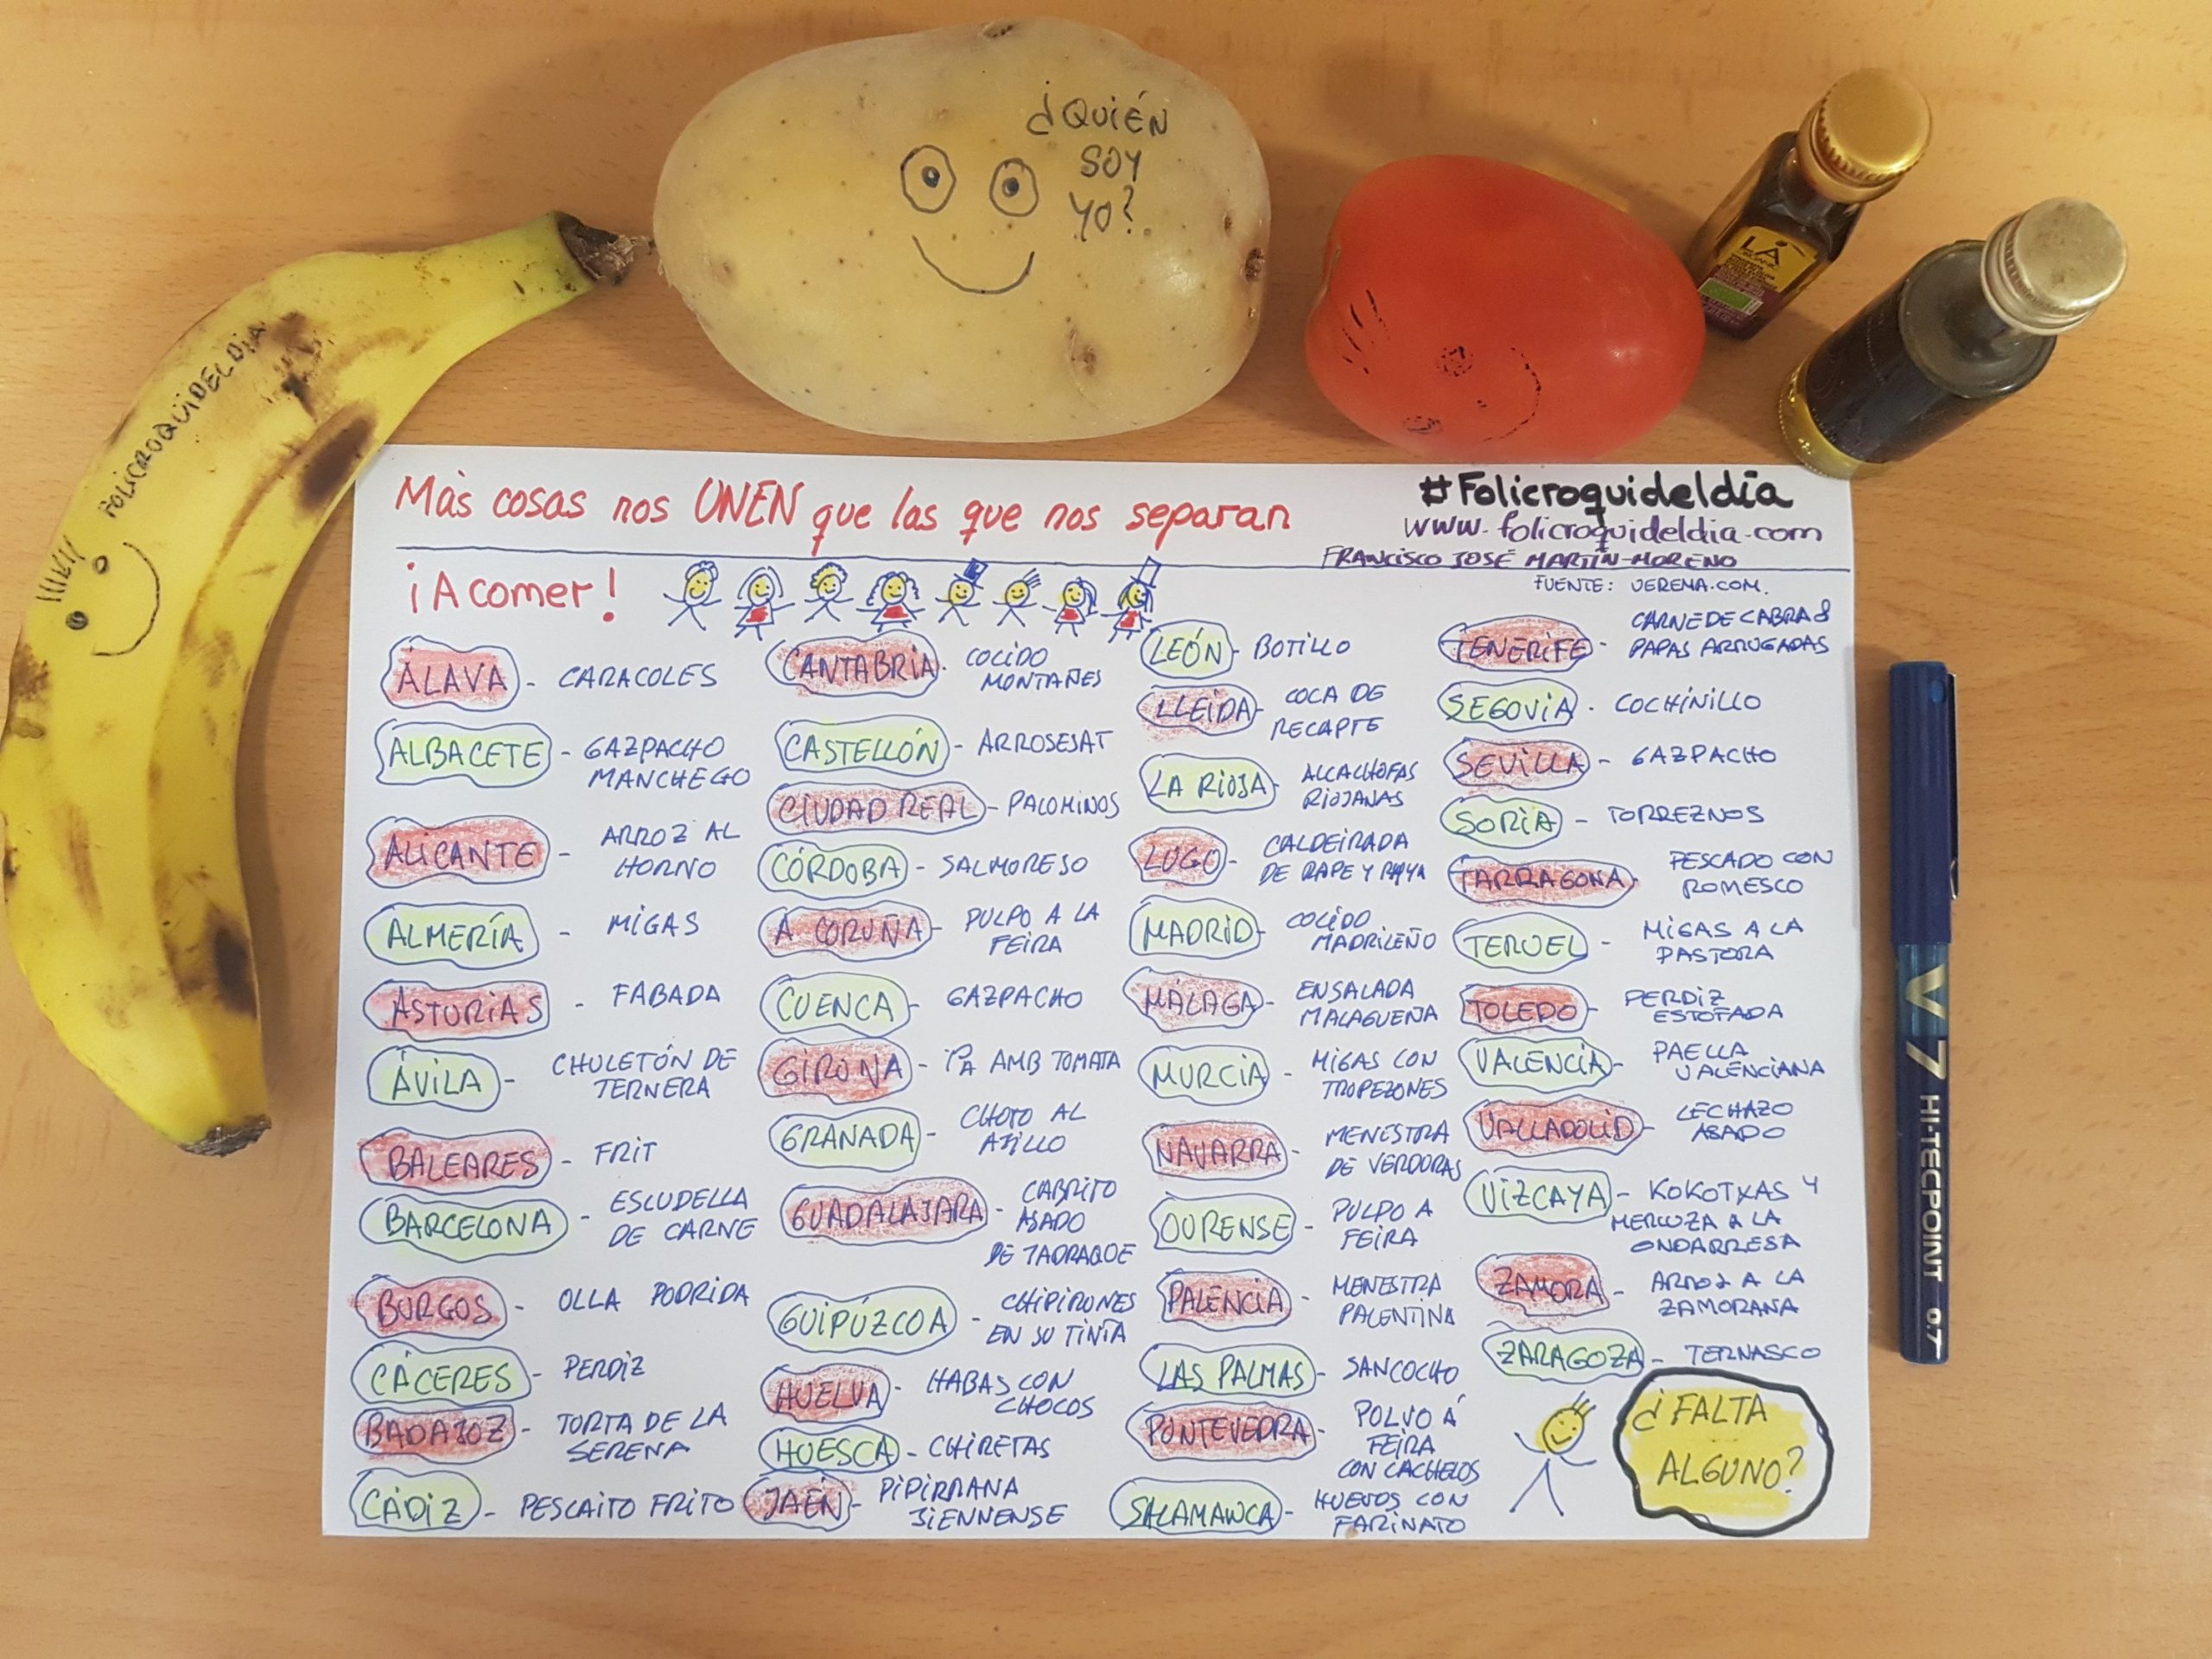 ¿QUIÉN
SOY
YO?
FOLICROQUIDELDIA
LA
Más cosas nos UNEN que las que nos separan
#Folicroquideldía
www.folicroquideldia.com
FRANCISCO JOSÉ MARTÍN-MORENO
FUENTE: VEREMA.COM.
¡A comer!
ÁLAVA - CARACOLES
ALBACETE - GAZPACHO
MANCHEGO
ALICANTE - ARROZ AL
HORNO
ALMERÍA - MIGAS
ASTURIAS - FABADA
ÁVILA - CHULETÓN DE
TERNERA
BALEARES - FRIT
BARCELONA - ESCUDELLA
DE CARNE
BURGOS - OLLA PODRIDA
CÁCERES - PERDIZ
BADAJOZ - TORTA DE LA
SERENA
CÁDIZ - PESCAITO FRITO
CANTABRIA - COCIDO
MONTAÑES
CASTELLÓN - ARROSEJAT
CIUDAD REAL - PALOMINOS
CÓRDOBA - SALMOREJO
A CORUÑA - PULPO A LA
FEIRA
CUENCA - GAZPACHO
GIRONA - PA AMB TOMATA
GRANADA - CHOTO AL
AJILLO
GUADALAJARA - CABRITO
ASADO
DE JADRAQUE
GUIPÚZCOA - CHIPIRONES
EN SU TINTA
HUELVA - HABAS CON
CHOCOS
HUESCA - CHIRETAS
JAÉN - PIPIRRANA
JIENNENSE
LEÓN - BOTILLO
LLEIDA - COCA DE
RECAPTE
LA RIOJA - ALCACHOFAS
RIOJANAS
LUGO - CALDEIRADA
DE RAPE Y RAYA
MADRID - COCIDO
MADRILEÑO
MÁLAGA - ENSALADA
MALAGUEÑA
MURCIA - MIGAS CON
TROPEZONES
NAVARRA - MENESTRA
DE VERDURAS
OURENSE - PULPO A
FEIRA
PALENCIA - MENESTRA
PALENTINA
LAS PALMAS - SANCOCHO
PONTEVEDRA - POLVO Á
FEIRA
CON CACHELOS
SALAMANCA - HUEVOS CON
FARINATO
TENERIFE - CARNE DE CABRA &
PAPAS ARRUGADAS
SEGOVIA - COCHINILLO
SEVILLA - GAZPACHO
SORIA - TORREZNOS
TARRAGONA - PESCADO CON
ROMESCO
TERUEL - MIGAS A LA
PASTORA
TOLEDO - PERDIZ
ESTOFADA
VALENCIA - PAELLA
VALENCIANA
VALLADOLID - LECHAZO
ASADO
VIZCAYA - KOKOTXAS Y
MERLUZA A LA
ONDARRESA
ZAMORA - ARROZ A LA
ZAMORANA
ZARAGOZA - TERNASCO
¿FALTA
ALGUNO?
V7 HI-TECPOINT 0.7